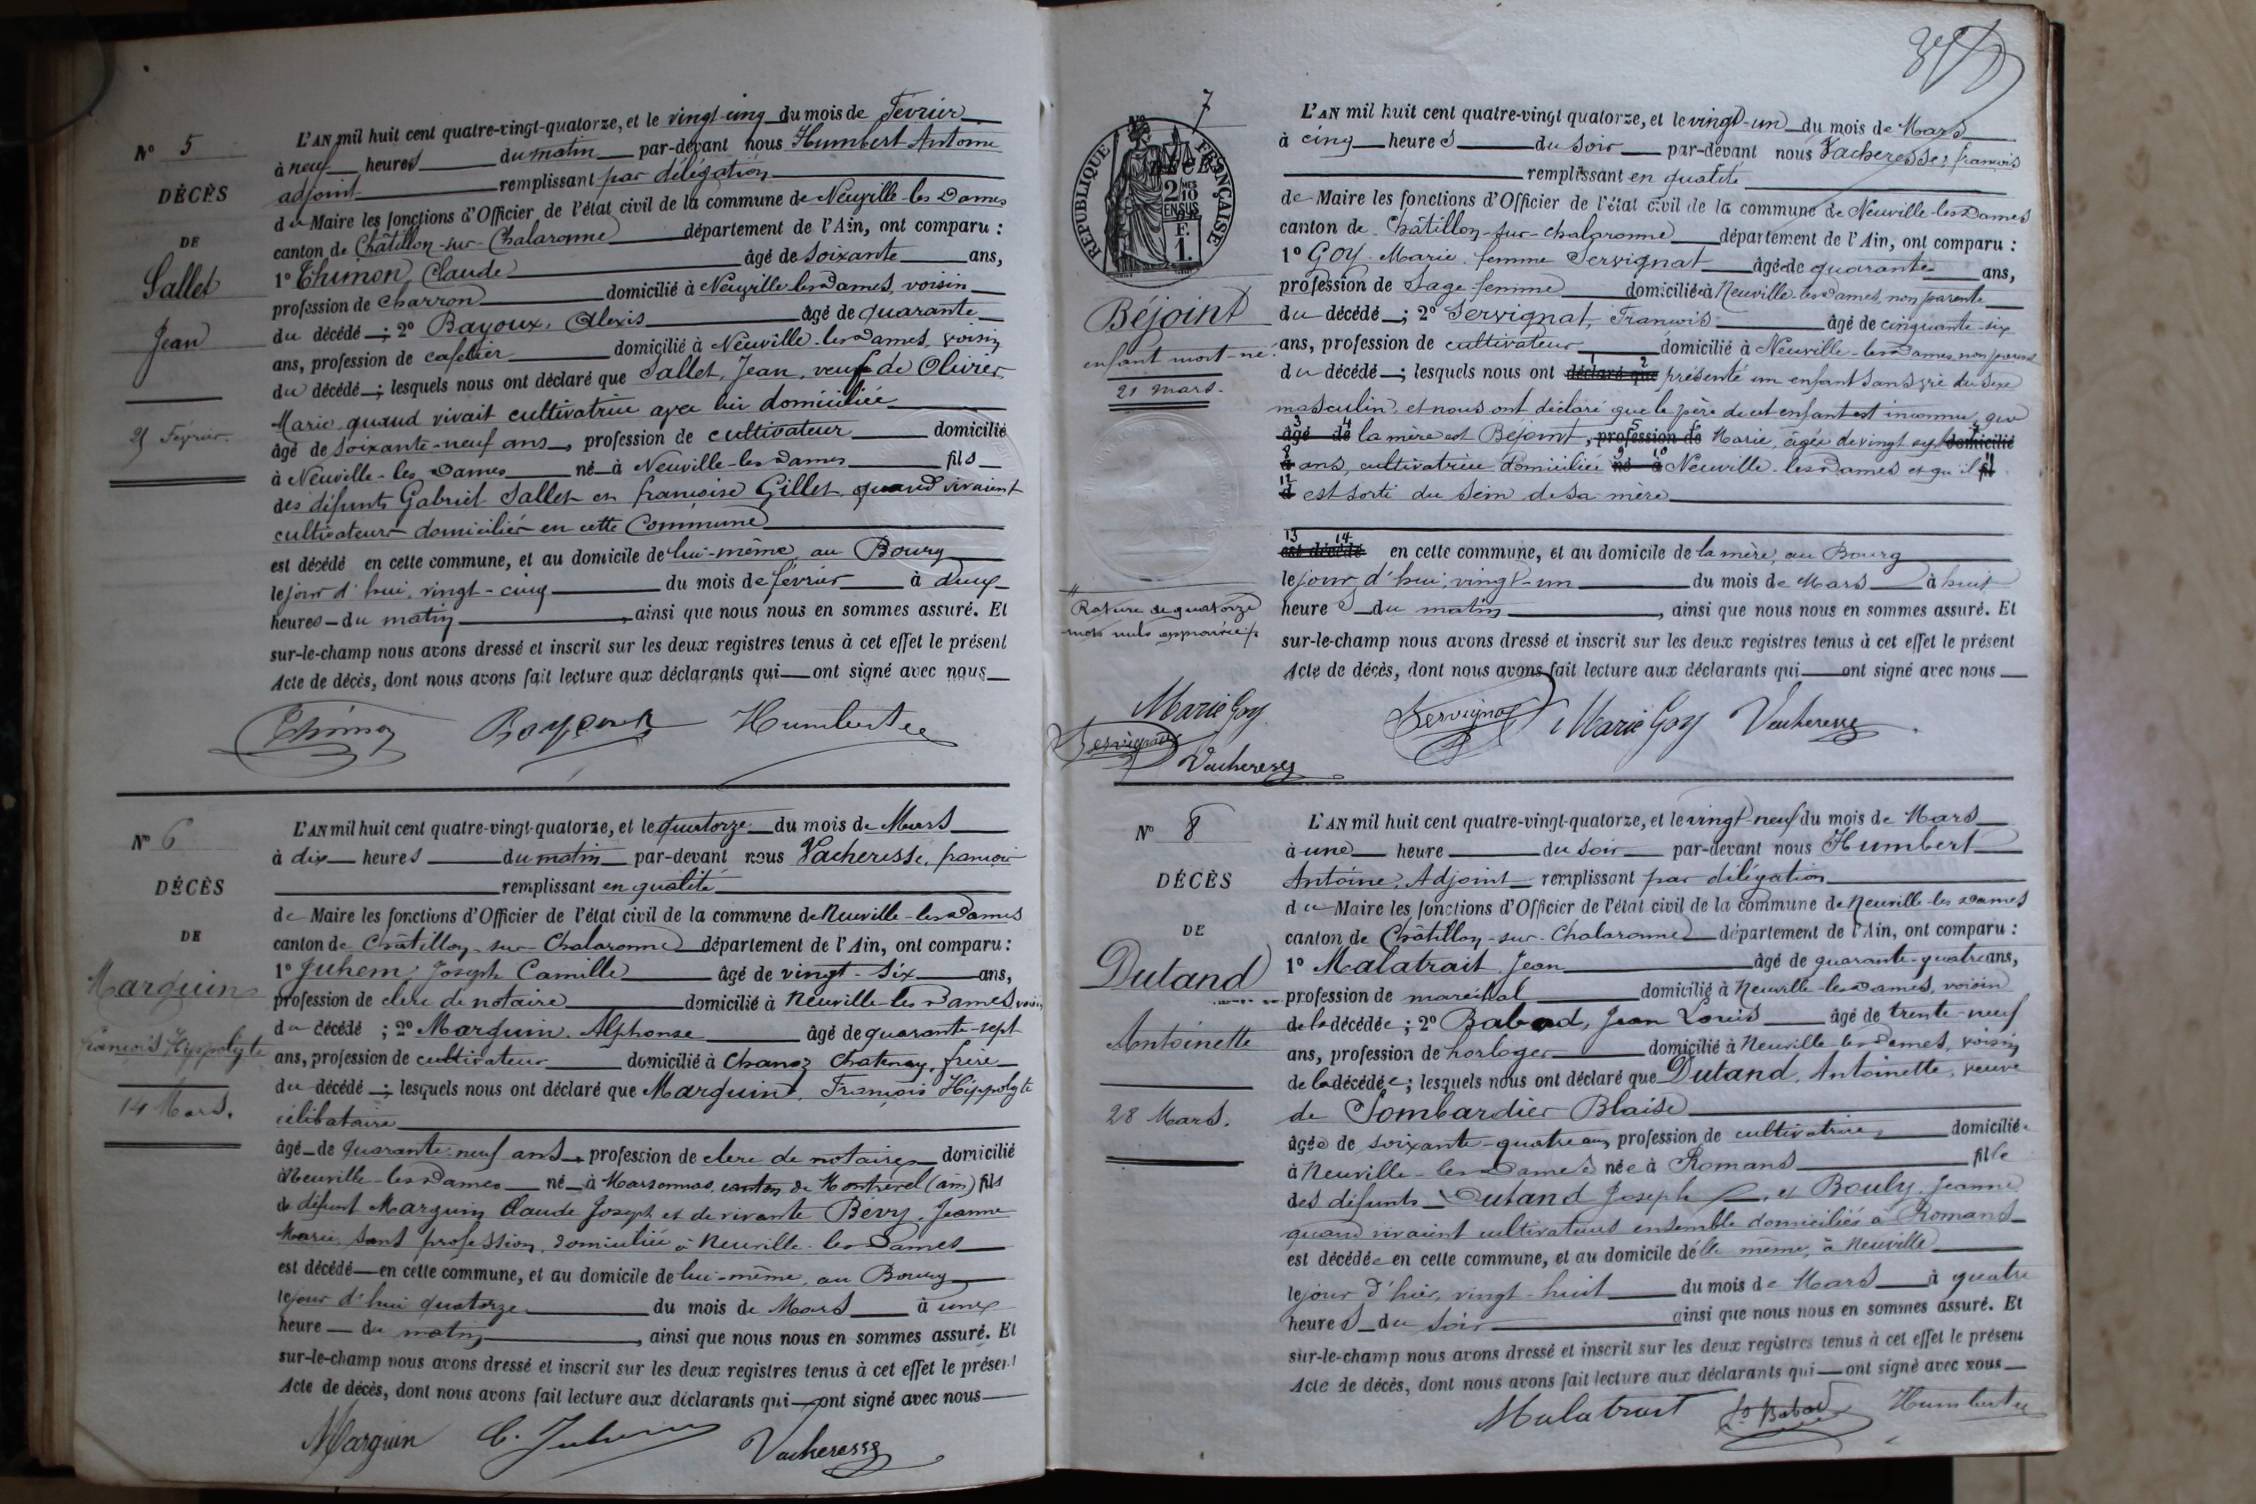 N° 5
DÉCÈS
DE
Sallet
Jean
25 Février.
L'AN mil huit cent quatre-vingt-quatorze, et le vingt-cinq du mois de Février
à neuf heures du matin par-devant nous Humbert Antoine
adjoint remplissant par délégation
du Maire les fonctions d'Officier de l'état civil de la commune de Neuville-les-Dames
canton de Châtillon-sur-Chalaronne département de l'Ain, ont comparu :
1° Thimon, Claude âgé de soixante ans,
profession de charron domicilié à Neuville-les-Dames, voisin
du décédé ; 2° Bayoux, Alexis âgé de quarante
ans, profession de cafetier domicilié à Neuville-les-Dames, voisin
du décédé ; lesquels nous ont déclaré que Sallet, Jean, veuf de Olivier
Marie quand vivait cultivatrice avec lui domiciliée
âgé de soixante-neuf ans, profession de cultivateur domicilié
à Neuville-les-Dames né à Neuville-les-Dames fils
des défunts Gabriel Sallet et françoise Gillet, quand vivaient
cultivateurs domiciliés en cette Commune
est décédé en cette commune, et au domicile de lui-même, au Bourg
le jour d'hui, vingt-cinq du mois de février à deux
heures du matin, ainsi que nous nous en sommes assuré. Et
sur-le-champ nous avons dressé et inscrit sur les deux registres tenus à cet effet le présent
Acte de décès, dont nous avons fait lecture aux déclarants qui ont signé avec nous
Thimon Bayoux Humbert
N° 6
DÉCÈS
DE
Marguin
François Hippolyte
14 Mars.
L'AN mil huit cent quatre-vingt-quatorze, et le quatorze du mois de Mars
à dix heures du matin par-devant nous Vacheresse, françois
remplissant en qualité
de Maire les fonctions d'Officier de l'état civil de la commune de Neuville-les-Dames
canton de Châtillon-sur-Chalaronne département de l'Ain, ont comparu :
1° Juhem, Joseph Camille âgé de vingt-six ans,
profession de clerc de notaire domicilié à Neuville-les-Dames, voisin
du décédé ; 2° Marguin, Alphonse âgé de quarante-sept
ans, profession de cultivateur domicilié à Chanoz Chatenay, frère
du décédé ; lesquels nous ont déclaré que Marguin, François Hippolyte
célibataire
âgé de quarante-neuf ans, profession de clerc de notaire domicilié
à Neuville-les-Dames né à Marsonnas, canton de Montrevel (ain) fils
de défunt Marguin Claude Joseph et de vivante Bévy, Jeanne
Marie, sans profession, domiciliée à Neuville-les-Dames
est décédé en cette commune, et au domicile de lui-même, au Bourg
le jour d'hui quatorze du mois de Mars à une
heure du matin, ainsi que nous nous en sommes assuré. Et
sur-le-champ nous avons dressé et inscrit sur les deux registres tenus à cet effet le présent
Acte de décès, dont nous avons fait lecture aux déclarants qui ont signé avec nous
Marguin C. Juhem Vacheresse
7
RÉPUBLIQUE FRANÇAISE
2 MES 10 EN SUS
1 F.
Béjoint
enfant mort-né.
21 Mars.
Rature de quatorze
mots nuls approuvée
Marie Goy
Servignat
Vacheresse
L'AN mil huit cent quatre-vingt quatorze, et le vingt-un du mois de Mars
à cinq heures du soir par-devant nous Vacheresse, françois
remplissant en qualité
de Maire les fonctions d'Officier de l'état civil de la commune de Neuville-les-Dames
canton de Châtillon-sur-Chalaronne département de l'Ain, ont comparu :
1° Goy, Marie, femme Servignat âgé de quarante ans,
profession de Sage-femme domiciliée à Neuville-les-Dames, non parente
du décédé ; 2° Servignat, François âgé de cinquante-six
ans, profession de cultivateur domicilié à Neuville-les-Dames, non parent
du décédé ; lesquels nous ont déclaré que présenté un enfant sans vie du sexe
masculin, et nous ont déclaré que le père de cet enfant est inconnu, que
âgé de la mère est Béjoint, profession de Marie, âgée de vingt sept domicilié
à ans, cultivatrice domiciliée né à Neuville-les-Dames et qu'il fil
d est sorti du sein de sa mère
est décédé en cette commune, et au domicile de la mère, au Bourg
le jour d'hui, vingt-un du mois de Mars à huit
heures du matin, ainsi que nous nous en sommes assuré. Et
sur-le-champ nous avons dressé et inscrit sur les deux registres tenus à cet effet le présent
Acte de décès, dont nous avons fait lecture aux déclarants qui ont signé avec nous
Servignat Marie Goy Vacheresse
N° 8
DÉCÈS
DE
Dutand
Antoinette
28 Mars.
L'AN mil huit cent quatre-vingt-quatorze, et le vingt-neuf du mois de Mars
à une heure du soir par-devant nous Humbert
Antoine, Adjoint remplissant par délégation
du Maire les fonctions d'Officier de l'état civil de la commune de Neuville-les-Dames
canton de Châtillon-sur-Chalaronne département de l'Ain, ont comparu :
1° Malatrait, Jean âgé de quarante-quatre ans,
profession de maréchal domicilié à Neuville-les-Dames, voisin
de la décédée ; 2° Babad, Jean Louis âgé de trente-neuf
ans, profession de horloger domicilié à Neuville-les-Dames, voisin
de la décédée ; lesquels nous ont déclaré que Dutand, Antoinette, veuve
de Sombardier Blaise
âgée de soixante-quatre ans, profession de cultivatrice domiciliée
à Neuville-les-Dames née à Romans fille
des défunts Dutand Joseph et Bouly, Jeanne
quand vivaient cultivateurs ensemble domiciliés à Romans
est décédée en cette commune, et au domicile d'elle même, à Neuville
le jour d'hier, vingt-huit du mois de Mars à quatre
heures du soir ainsi que nous nous en sommes assuré. Et
sur-le-champ nous avons dressé et inscrit sur les deux registres tenus à cet effet le présent
Acte de décès, dont nous avons fait lecture aux déclarants qui ont signé avec nous
Malatrait Babad Humbert